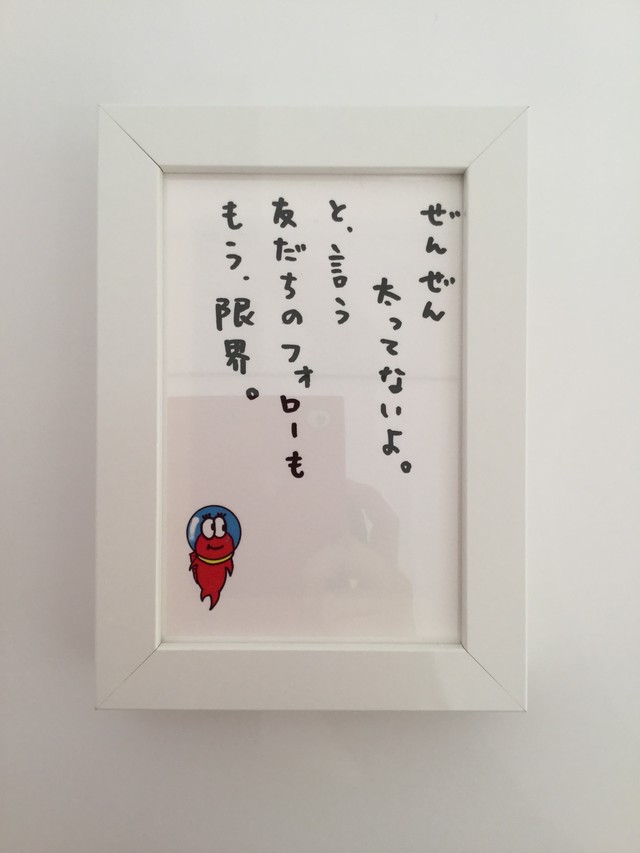 ぜんぜん
太ってないよ。
と、言う
友だちのフォローも
もう、限界。